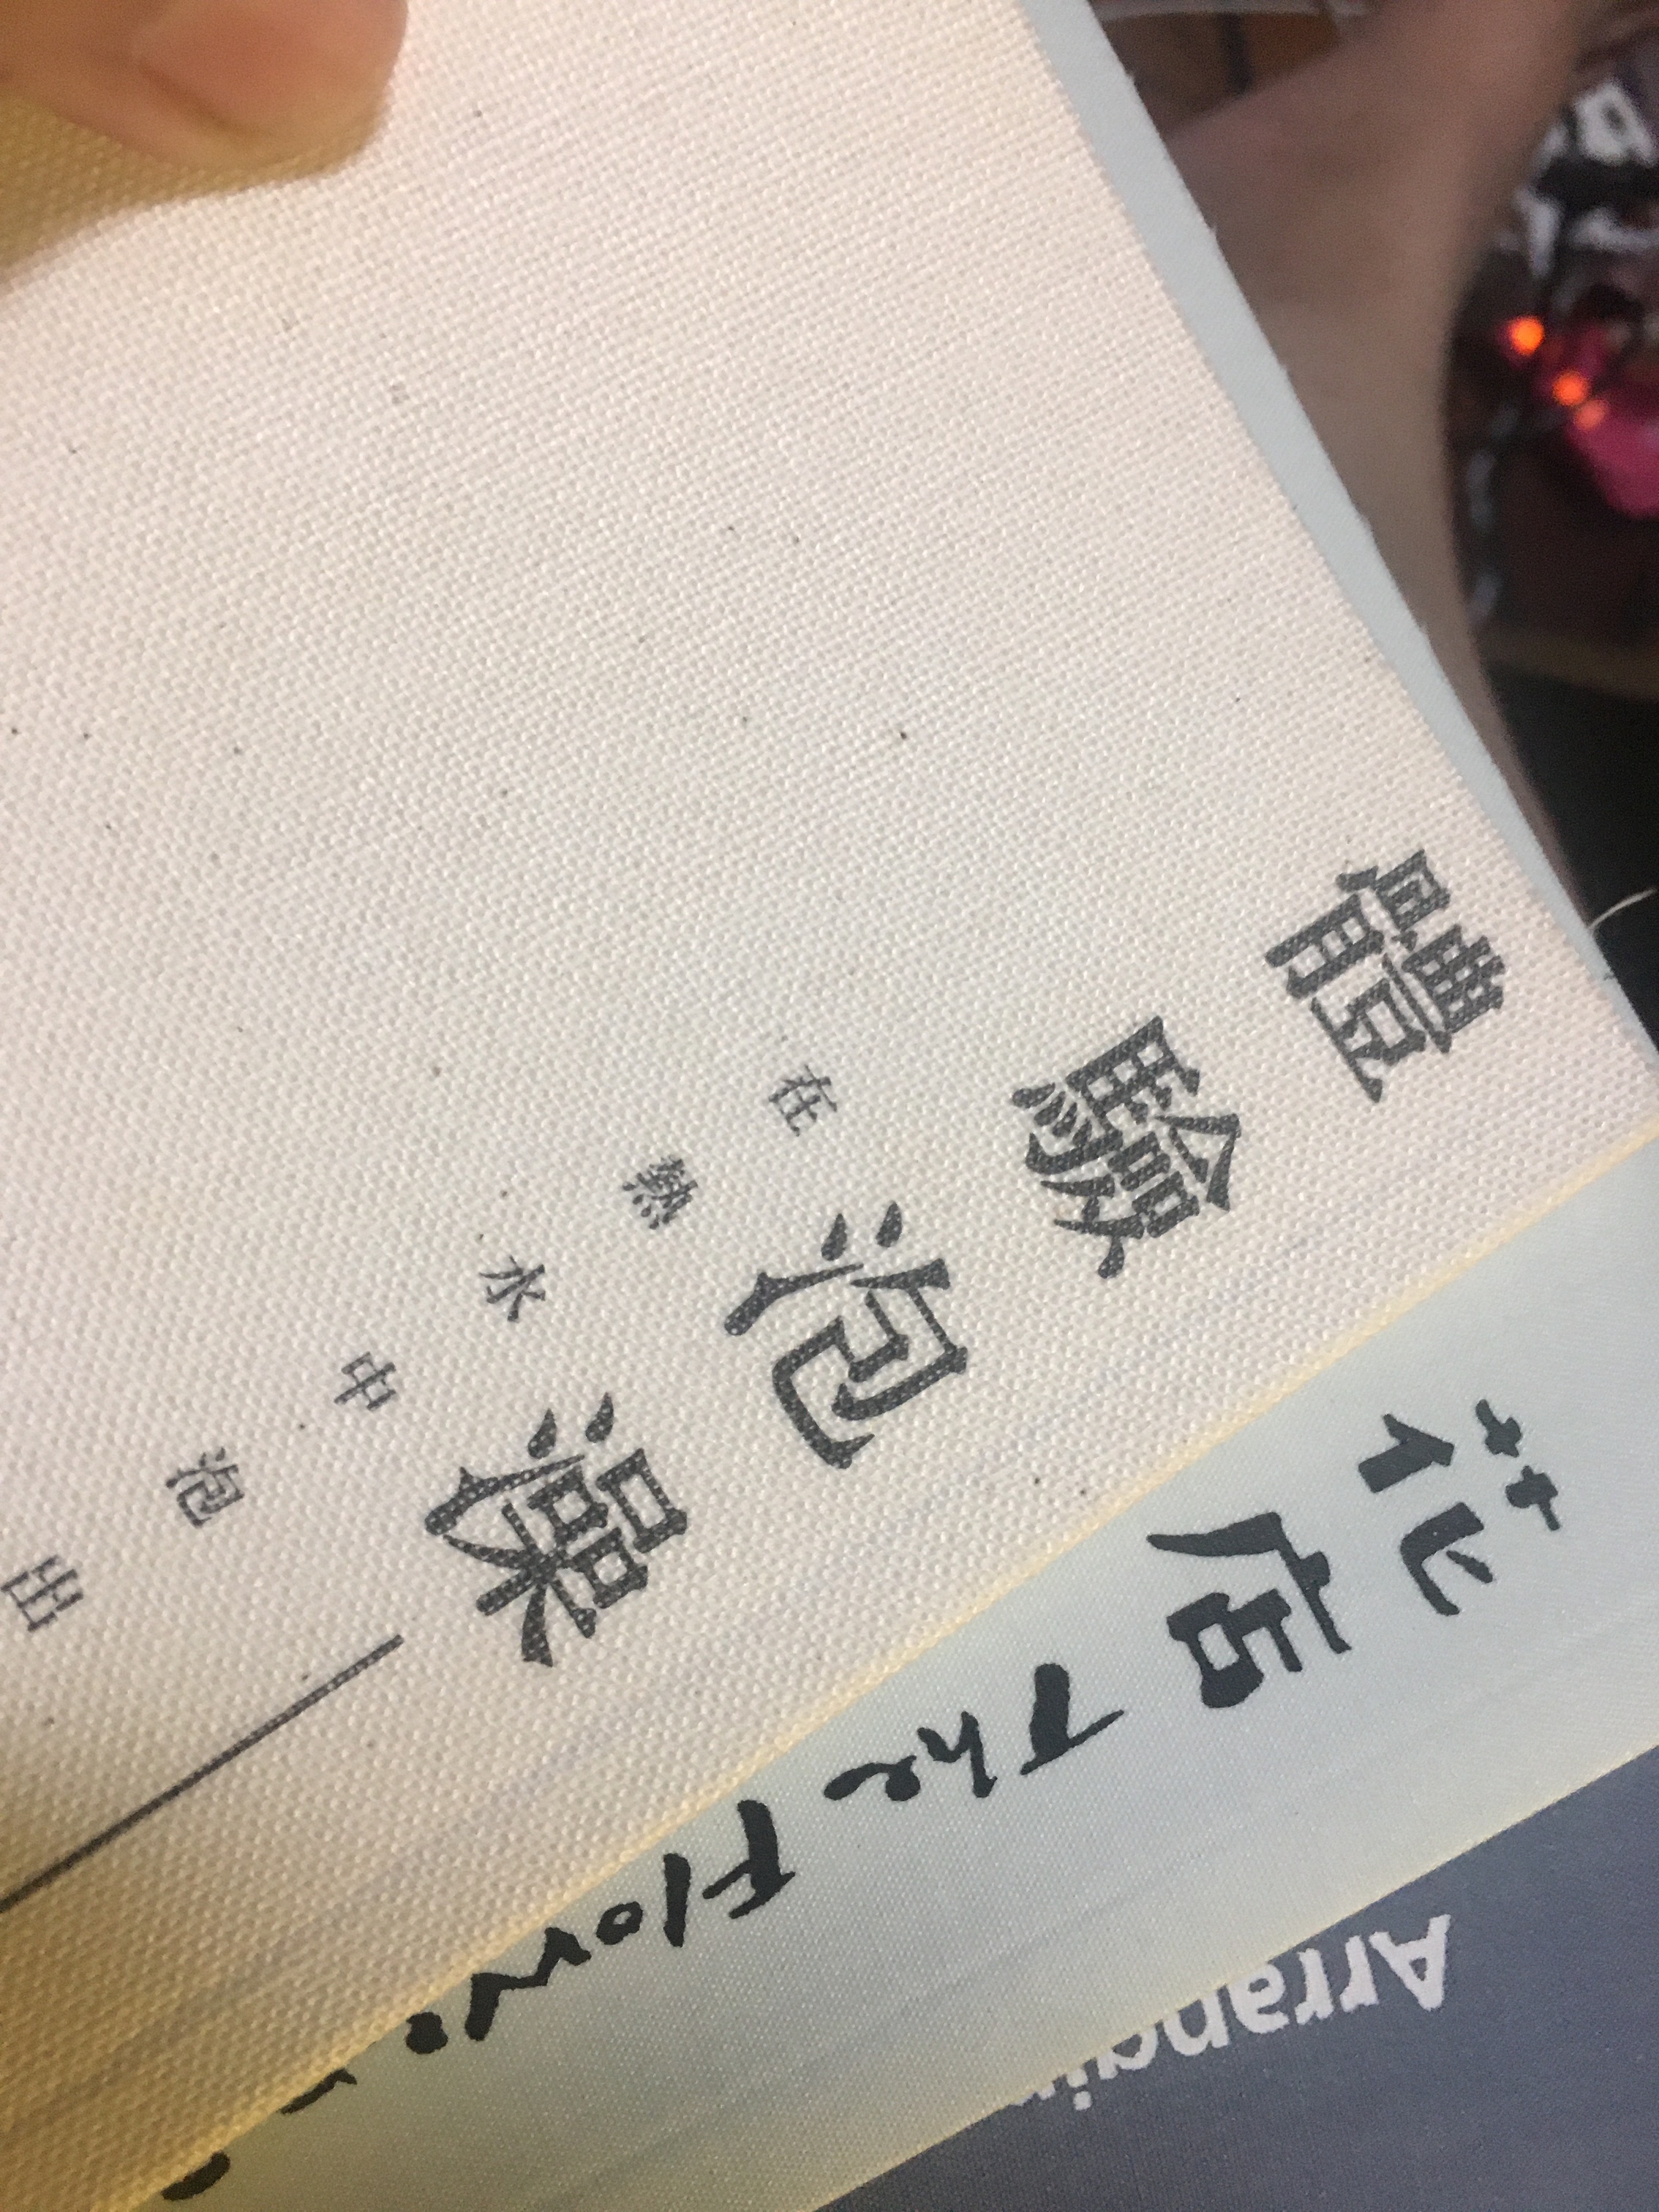 體驗泡澡
在熱水中泡出
花店 The Flowe
Arrangi